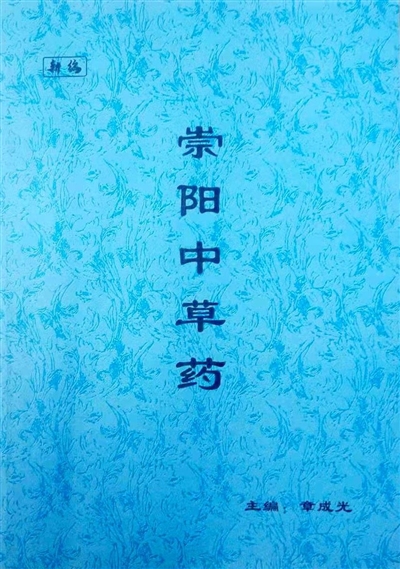 新编
崇阳中草药
主编：章成光